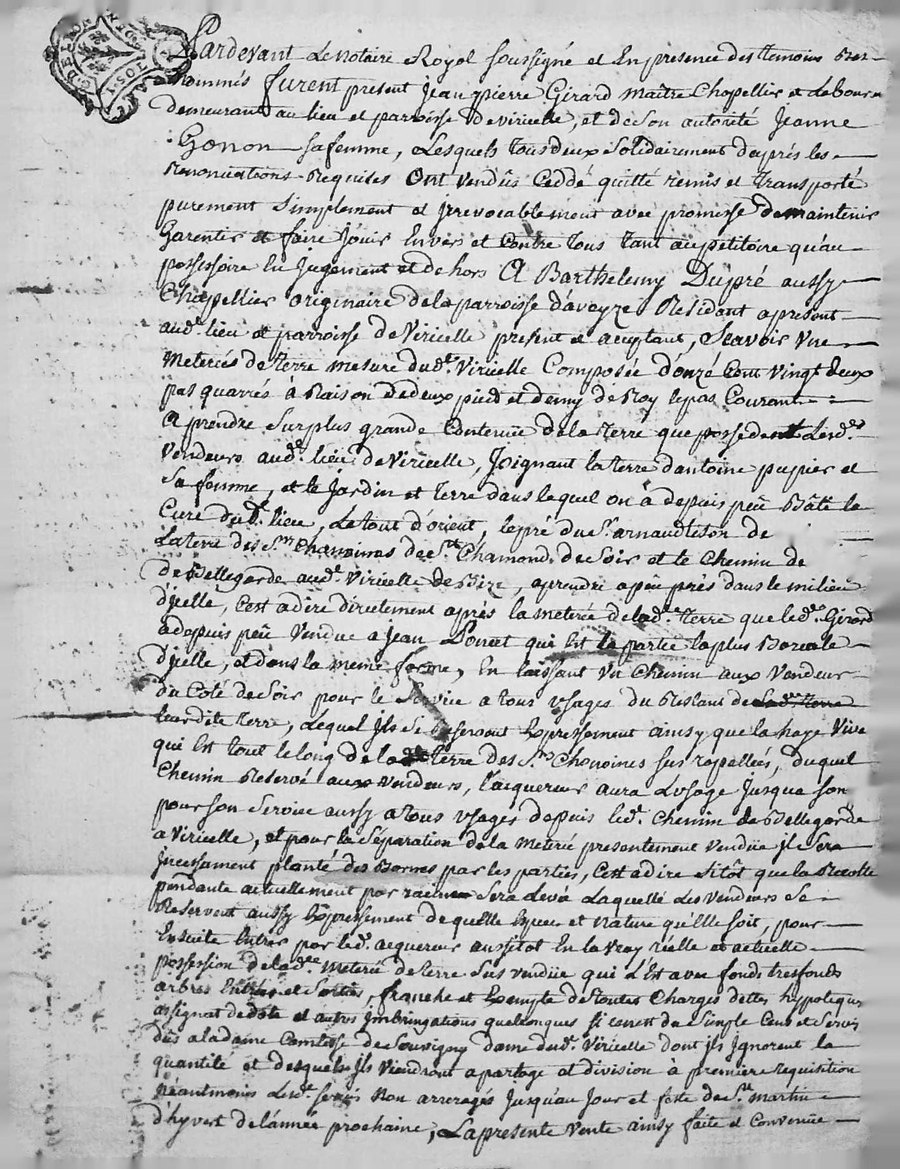 Pardevant Le notaire Royal soussigné et En presence des temoins bas
nommés furent present Jean pierre Girard maitre Chapellier et
demeurant au lieu et parroisse de viricelle, et de son autorité Jeanne
Gonon sa femme, Lesquels tous deux solidairement daprés les
Renonciations Requises Ont vendûs Ceddé quitté remis et transporté
purement simplement et jrrevocablement avec promesse de maintenir
Garentir et faire jouir Envers et contre tous tant au petitoire qu'au
possessoire En jugement et de hors A Barthelemy Dupré aussy
Chapellier originaire de la parroisse d'aveyze Residant apresent
aud. lieu et parroisse de Viricelle present et aceptant, Scavoir Une
meterieé de terre mesure dud. Viricelle Composée d'onzé Cent vingt deux
pas quarrés à Raison de deux pied et demy de Roy le pas Courant
A prendre sur plus grande Contenüe de la terre que possedent Lesd.
Vendeurs aud. lieu de Viricelle, Joignant la terre d'antoine pupier et
Sa femme, et le jardin et terre dans lequel on à depuis peü Bâti la
Cure dud. lieu, Le tout d'orient, le pré du Sr. arnaud
La terre des Srs Chanoines de St. Chamond de soir et le Chemin de
de Bellegarde aud. Viricelle de Bize, aprendre apeu prés dans le milieu
d'jcelle, C'est adire directement aprés la meteriée de lad. terre que led. Girard
adepuis peü vendue a Jean Poncet qui Est la partie la plus Boreale
d'jcelle, et dans la meme forme, En laissant Un Chemin aux Vendeurs
du Coté de soir pour le service a tous usages du Restant de Lad. terre
leur dite terre, Lequel Ils se Reservent Expressement ainsy que la haye Vive
qui Est tout le long de lad. terre des Srs Chanoines sus rapellées, duquel
Chemin Reservé aux vendeurs, l'acquereur aura L'usage jusqua son
pour son service aussy atous usages depuis led. Chemin de Bellegarde
a Viricelle, et pour la séparation de la meterié presentement Vendüe Jl sera
jncessament planté des Bornes par les parties, C'est adire sitôt que la Recolte
pendante actuellement par racine sera Levée Laquelle Les Vendeurs se
Reservent aussy Expressement de quelle Espece et nature qu'Elle soit, pour
Ensuite Entrer par led. acquereur aussitot En la vray réelle et actuelle
possession de lad. meterié de terre sus vendüe qui L'est avec fonds tresfonds
arbres Entrées et sorties, franche et Exempte de toutes Charges dettes hypoteques
assignat de dote et autres Imbringations quelconques si cenest du simple Cens et servis
dûs a la dame Comtesse de Souvigny dame dud. Viricelle dont jls jgnorent la
quantité et desquels jls Viendront a partage et division à premiere requisition
Néantmoins Lesd. servis non arreragés jusqu'au jour et feste de St. martin
d'hyvert de l'année prochaine, La presente Vente ainsy faite et Convenüe